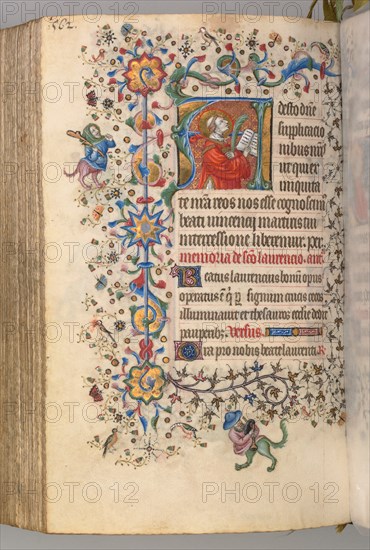 502.
Adesto dn̄e
supplicatio
nibus nr̄is
ut qui ex
iniquita
te nr̄a reos nos esse cognoscim
beati vincencij martiris tui
intercessione liberemur. per
memoria de sc̄o laurencio. an̄
Beatus laurencius bonum opus
operatus ē q̄ p̄ signum crucis cecos
illuminavit et thesauros ecclīe dedit
pauperibz. Versus
Ora pro nobis beate laurenti. R̄
PHOTO12